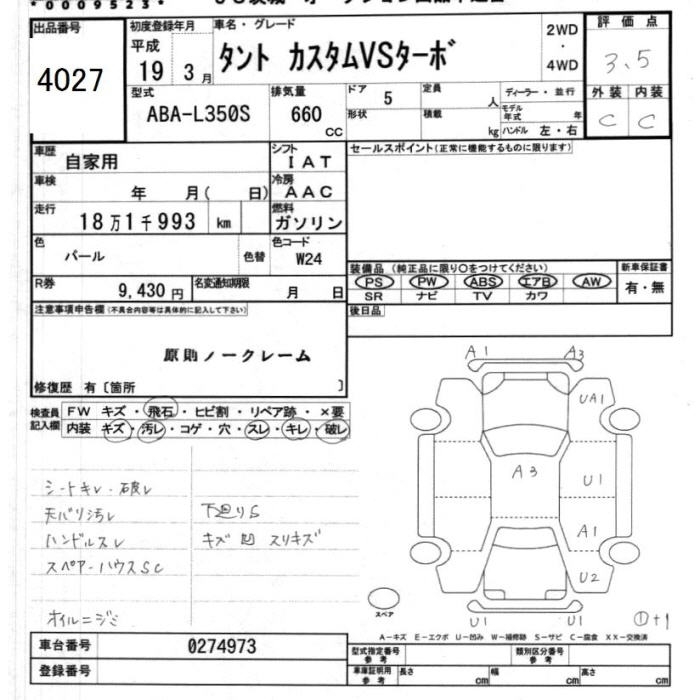 *0009523*
出品番号
4027
初度登録年月
平成
19 3月
車名・グレード
タント カスタムVSターボ
2WD
・
4WD
評価点
3.5
型式
ABA-L350S
排気量
660
cc
ドア 5
形状
定員 人
積載 kg
ディーラー・並行
モデル年式 年
ハンドル 左・右
外装 内装
C C
車歴 自家用
シフト IAT
車検 年 月( 日)
冷房 AAC
走行 18万1千993 km
燃料 ガソリン
色 パール 色替
色コード W24
R券 9,430円
名変通知期限 月 日
セールスポイント(正常に機能するものに限ります)
装備品 (純正品に限り○をつけてください)
PS PW ABS エアB AW
SR ナビ TV カワ
新車保証書
有・無
後日品
注意事項申告欄(不具合内容等は具体的に記入して下さい)
原則ノークレーム
修復歴 有〔箇所 〕
検査員記入欄
FW キズ・飛石・ヒビ割・リペア跡・×要
内装 キズ・汚レ・コゲ・穴・スレ・キレ・破レ
シートキレ・破レ
天バリ汚レ
ハンドルスレ
スペアーハウスSC
オイルニジミ
下廻りS
キズ 凹 スリキズ
A1 A3
UA1
A3
U1
A1
U2
スペア
U1 U1
①+1
A-キズ E-エクボ U-凹み W-補修跡 S-サビ C-腐食 XX-交換済
車台番号 0274973
登録番号
型式指定番号 参考
類別区分番号 参考
車庫証明用 参考
長さ cm
幅 cm
高さ cm